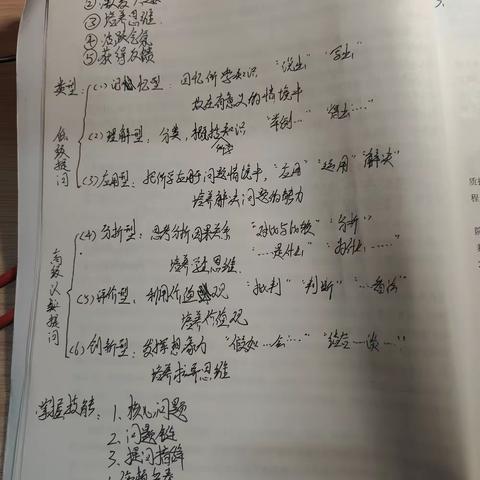 ③ 培养思维
④ 活跃气氛
⑤ 获得反馈
类型：(1) 记忆型：回忆所学知识 "说出" "写出"
放在有意义的情境中
低级提问
(2) 理解型：分类，概括知识 "举例…"
(3) 应用型：把所学应用于问题情境中，"应用" "运用" "解决"
培养解决问题的能力
高级认知提问
(4) 分析型：思考分析因果关系 "对比与比较" "分析"
"……是什么" "为什么……"
培养 思维.
(5) 评价型：利用价值观 "批判" "判断"
培养价值观
(6) 创新型：发挥想象力 "假如…会…" "结合…谈…"
培养求异思维
掌握技能：1. 核心问题
2. 问题链
3. 提问措辞
质
程